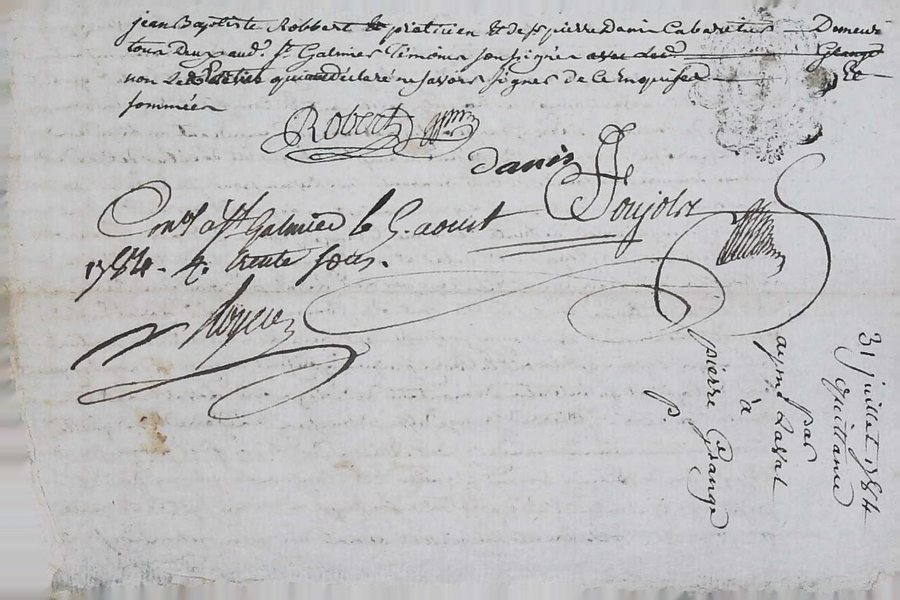 jean Baptiste Robbert praticien & de Sr pierre Danis Cabaretier Demeurt
tous Deux aud. St. Galmier Témoins soussignés avec led. Grange
non Led. qui a déclaré ne savoir signer de ce Enquis &
sommée
Robert
Danis
Poujolx
Con.lé à St Galmier le 5. aoust
1784. r. trente sous.
31 juillet 1784
quittance
par
aymé Laval
à
pierre Grange
p.